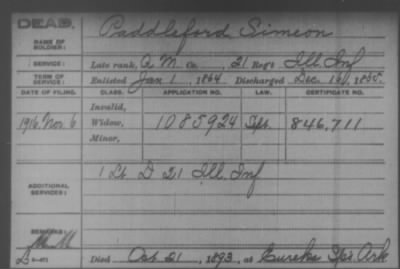 DEAD.
NAME OF SOLDIER:
Paddleford Simeon
SERVICE:
Late rank, Q M. Co. , 21 Reg't Ill Inf
TERM OF SERVICE:
Enlisted Jan 1, 1864 Discharged Dec. 16, 1865.
DATE OF FILING. CLASS. APPLICATION NO. LAW. CERTIFICATE NO.
Invalid,
1916. Nov. 6 Widow, 1085924 Sept. 846,711
Minor,
1 Lt D 21 Ill Inf
ADDITIONAL SERVICES:
REMARKS:
Died Oct 21, 1893, at Eureka Spr Ark